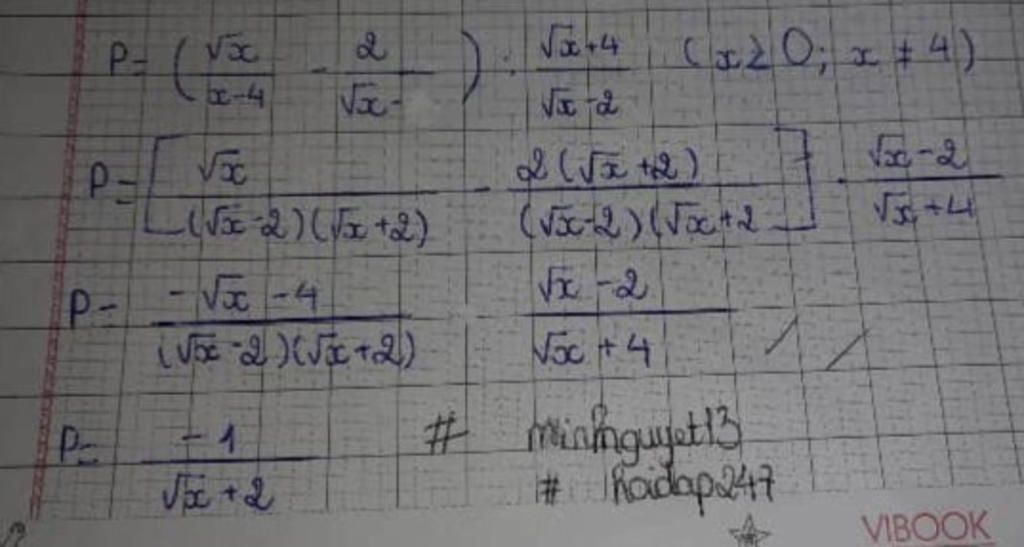 P = ( √x / x-4 - 2 / √x- ) : √x+4 / √x-2 ( x ≥ 0; x ≠ 4 )
P = [ √x / (√x-2)(√x+2) - 2(√x+2) / (√x-2)(√x+2 ] . √x-2 / √x+4
P = -√x-4 / (√x-2)(√x+2) √x-2 / √x+4
P = -1 / √x+2 # minhnguyet13
# hoidap247
VIBOOK